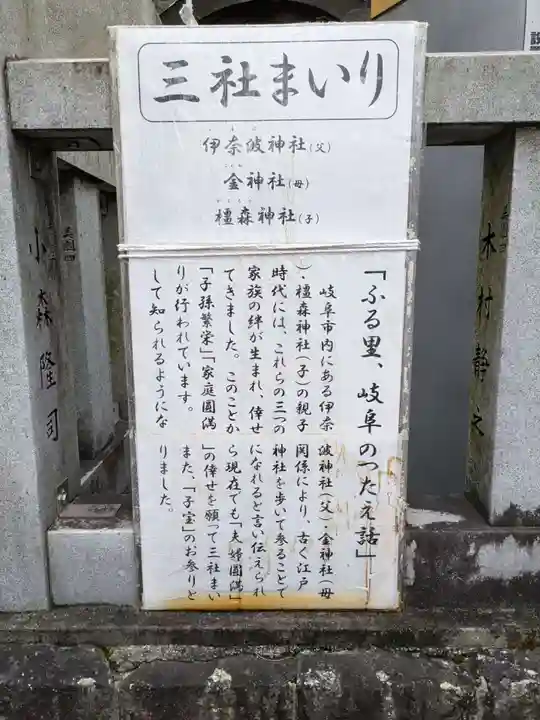 三社まいり
伊奈波神社(父)
金神社(母)
橿森神社(子)
「ふる里、岐阜のつたえ話」
岐阜市内にある伊奈波神社(父)金神社(母
)・橿森神社(子)の親子関係により、古く江戸
時代には、これらの三つの神社を歩いて参ることで
家族の絆が生まれ、倖せになれると言い伝えられ
てきました。このことから現在でも「夫婦圓満」
「子孫繁栄」「家庭圓満」の倖せを願って三社まい
りが行われています。また、「子宝」のお参りと
して知られるようになりました。
木村靜之
小森隆司
設